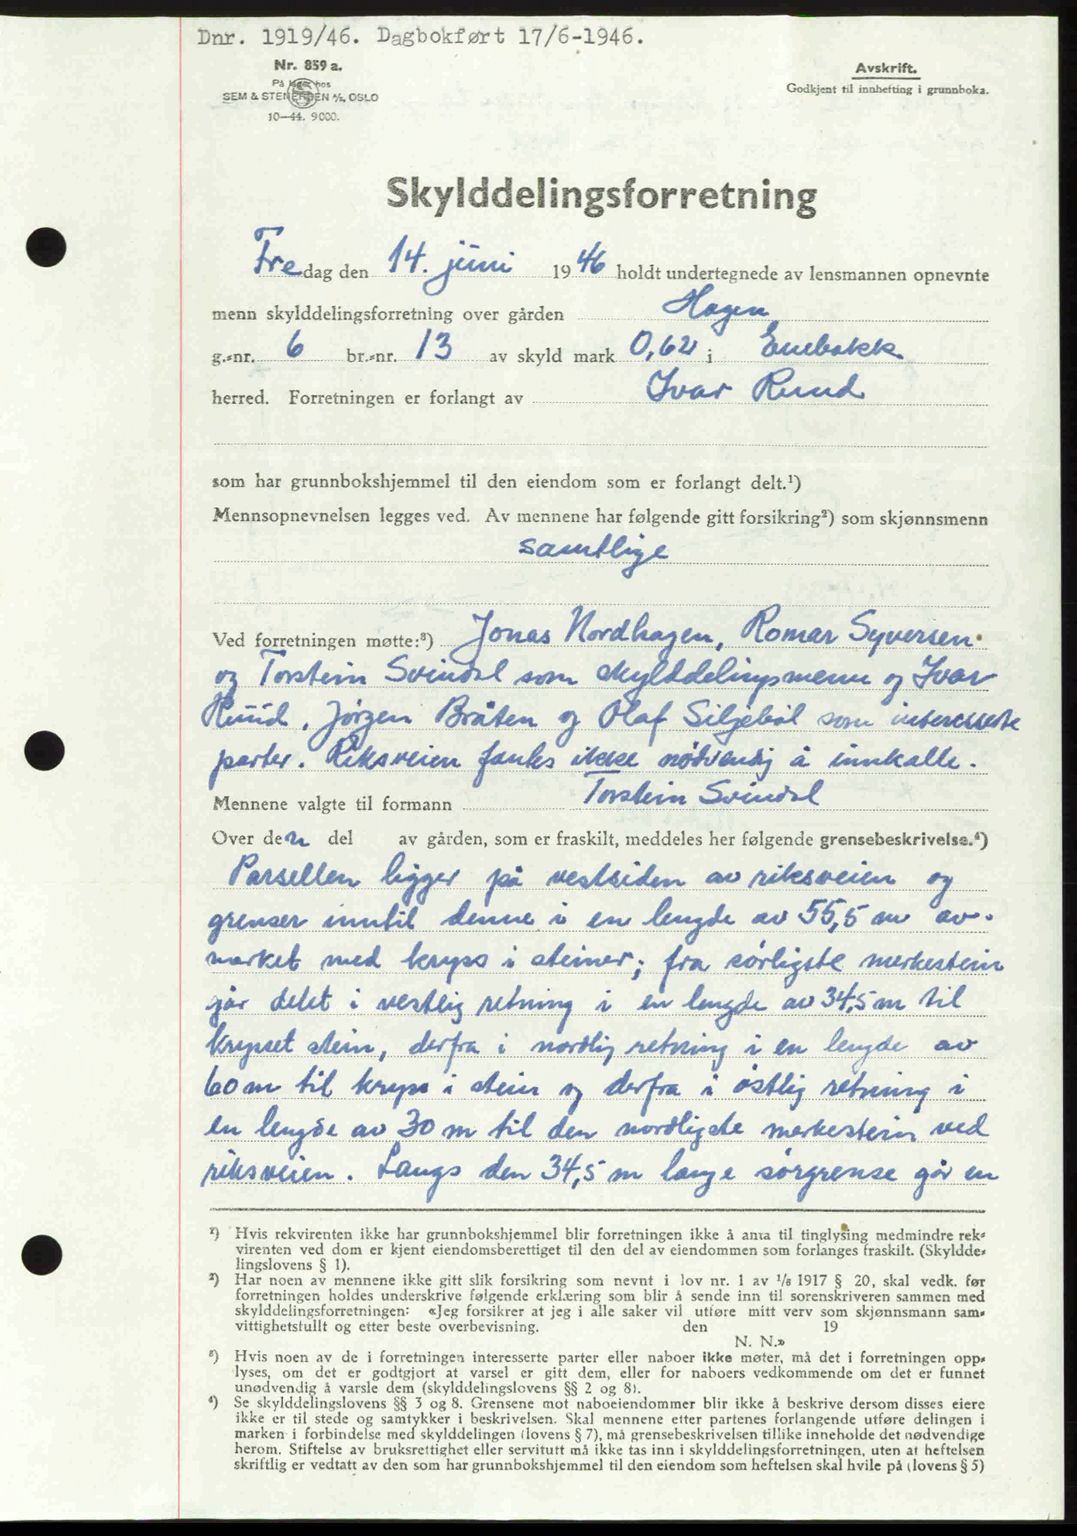 Dnr. 1919/46. Dagbokført 17/6-1946.
Nr. 859 a.
På lager hos
SEM & STENERSEN A/S, OSLO
10—44. 9000.
Avskrift.
Godkjent til innhefting i grunnboka.
Skylddelingsforretning
Fredag den 14. juni 1946 holdt undertegnede av lensmannen opnevnte
menn skylddelingsforretning over gården Hagen
g.-nr. 6 br.-nr. 13 av skyld mark 0,62 i Enebakk
herred. Forretningen er forlangt av Ivar Ruud
som har grunnbokshjemmel til den eiendom som er forlangt delt.¹)
Mennsopnevnelsen legges ved. Av mennene har følgende gitt forsikring²) som skjønnsmenn
samtlige
Ved forretningen møtte:³) Jonas Nordhagen, Romar Syversen
og Torstein Svindal som skylddelingsmenn og Ivar
Ruud, Jørgen Bråten og Olaf Siljebøl som interesserte
parter. Riksveien fantes ikke nødvendig å innkalle.
Mennene valgte til formann Torstein Svindal
Over den del av gården, som er fraskilt, meddeles her følgende grensebeskrivelse.⁴)
Parsellen ligger på vestsiden av riksveien og
grenser inntil denne i en lengde av 55,5 m av-
merket med kryss i steiner; fra sørligste merkestein
går delet i vestlig retning i en lengde av 34,5 m til
krysset stein, derfra i nordlig retning i en lengde av
60 m til kryss i stein og derfra i østlig retning i
en lengde av 30 m til den nordligste merkestein ved
riksveien. Langs den 34,5 m lange sørgrense går en
¹) Hvis rekvirenten ikke har grunnbokshjemmel blir forretningen ikke å anta til tinglysing medmindre rek-
virenten ved dom er kjent eiendomsberettiget til den del av eiendommen som forlanges fraskilt. (Skyldde-
lingslovens § 1).
²) Har noen av mennene ikke gitt slik forsikring som nevnt i lov nr. 1 av 1/6 1917 § 20, skal vedk. før
forretningen holdes underskrive følgende erklæring som blir å sende inn til sorenskriveren sammen med
skylddelingsforretningen: «Jeg forsikrer at jeg i alle saker vil utføre mitt verv som skjønnsmann sam-
vittighetsfullt og etter beste overbevisning. den 19
N. N.»
³) Hvis noen av de i forretningen interesserte parter eller naboer ikke møter, må det i forretningen opp-
lyses, om det er godtgjort at varsel er gitt dem, eller for naboers vedkommende om det er funnet
unødvendig å varsle dem (skylddelingslovens §§ 2 og 8).
⁴) Se skylddelingslovens §§ 3 og 8. Grensene mot naboeiendommer blir ikke å beskrive dersom disses eiere
ikke er til stede og samtykker i beskrivelsen. Skal mennene etter partenes forlangende utføre delingen i
marken i forbindelse med skylddelingen (lovens § 7), må grensebeskrivelsen tillike inneholde det nødvendige
herom. Stiftelse av bruksrettighet eller servitutt må ikke tas inn i skylddelingsforretningen, uten at heftelsen
skriftlig er vedtatt av den som har grunnbokshjemmel til den eiendom som heftelsen skal hvile på (lovens § 5)